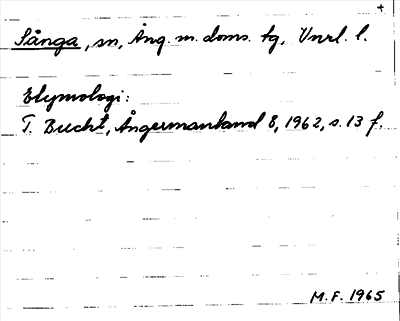 +
Sånga, sn, Ång. m. doms. tg, Vnrl. l.
Etymologi:
T. Bucht, Ångermanland 8, 1962, s. 13 f.
M.F. 1965